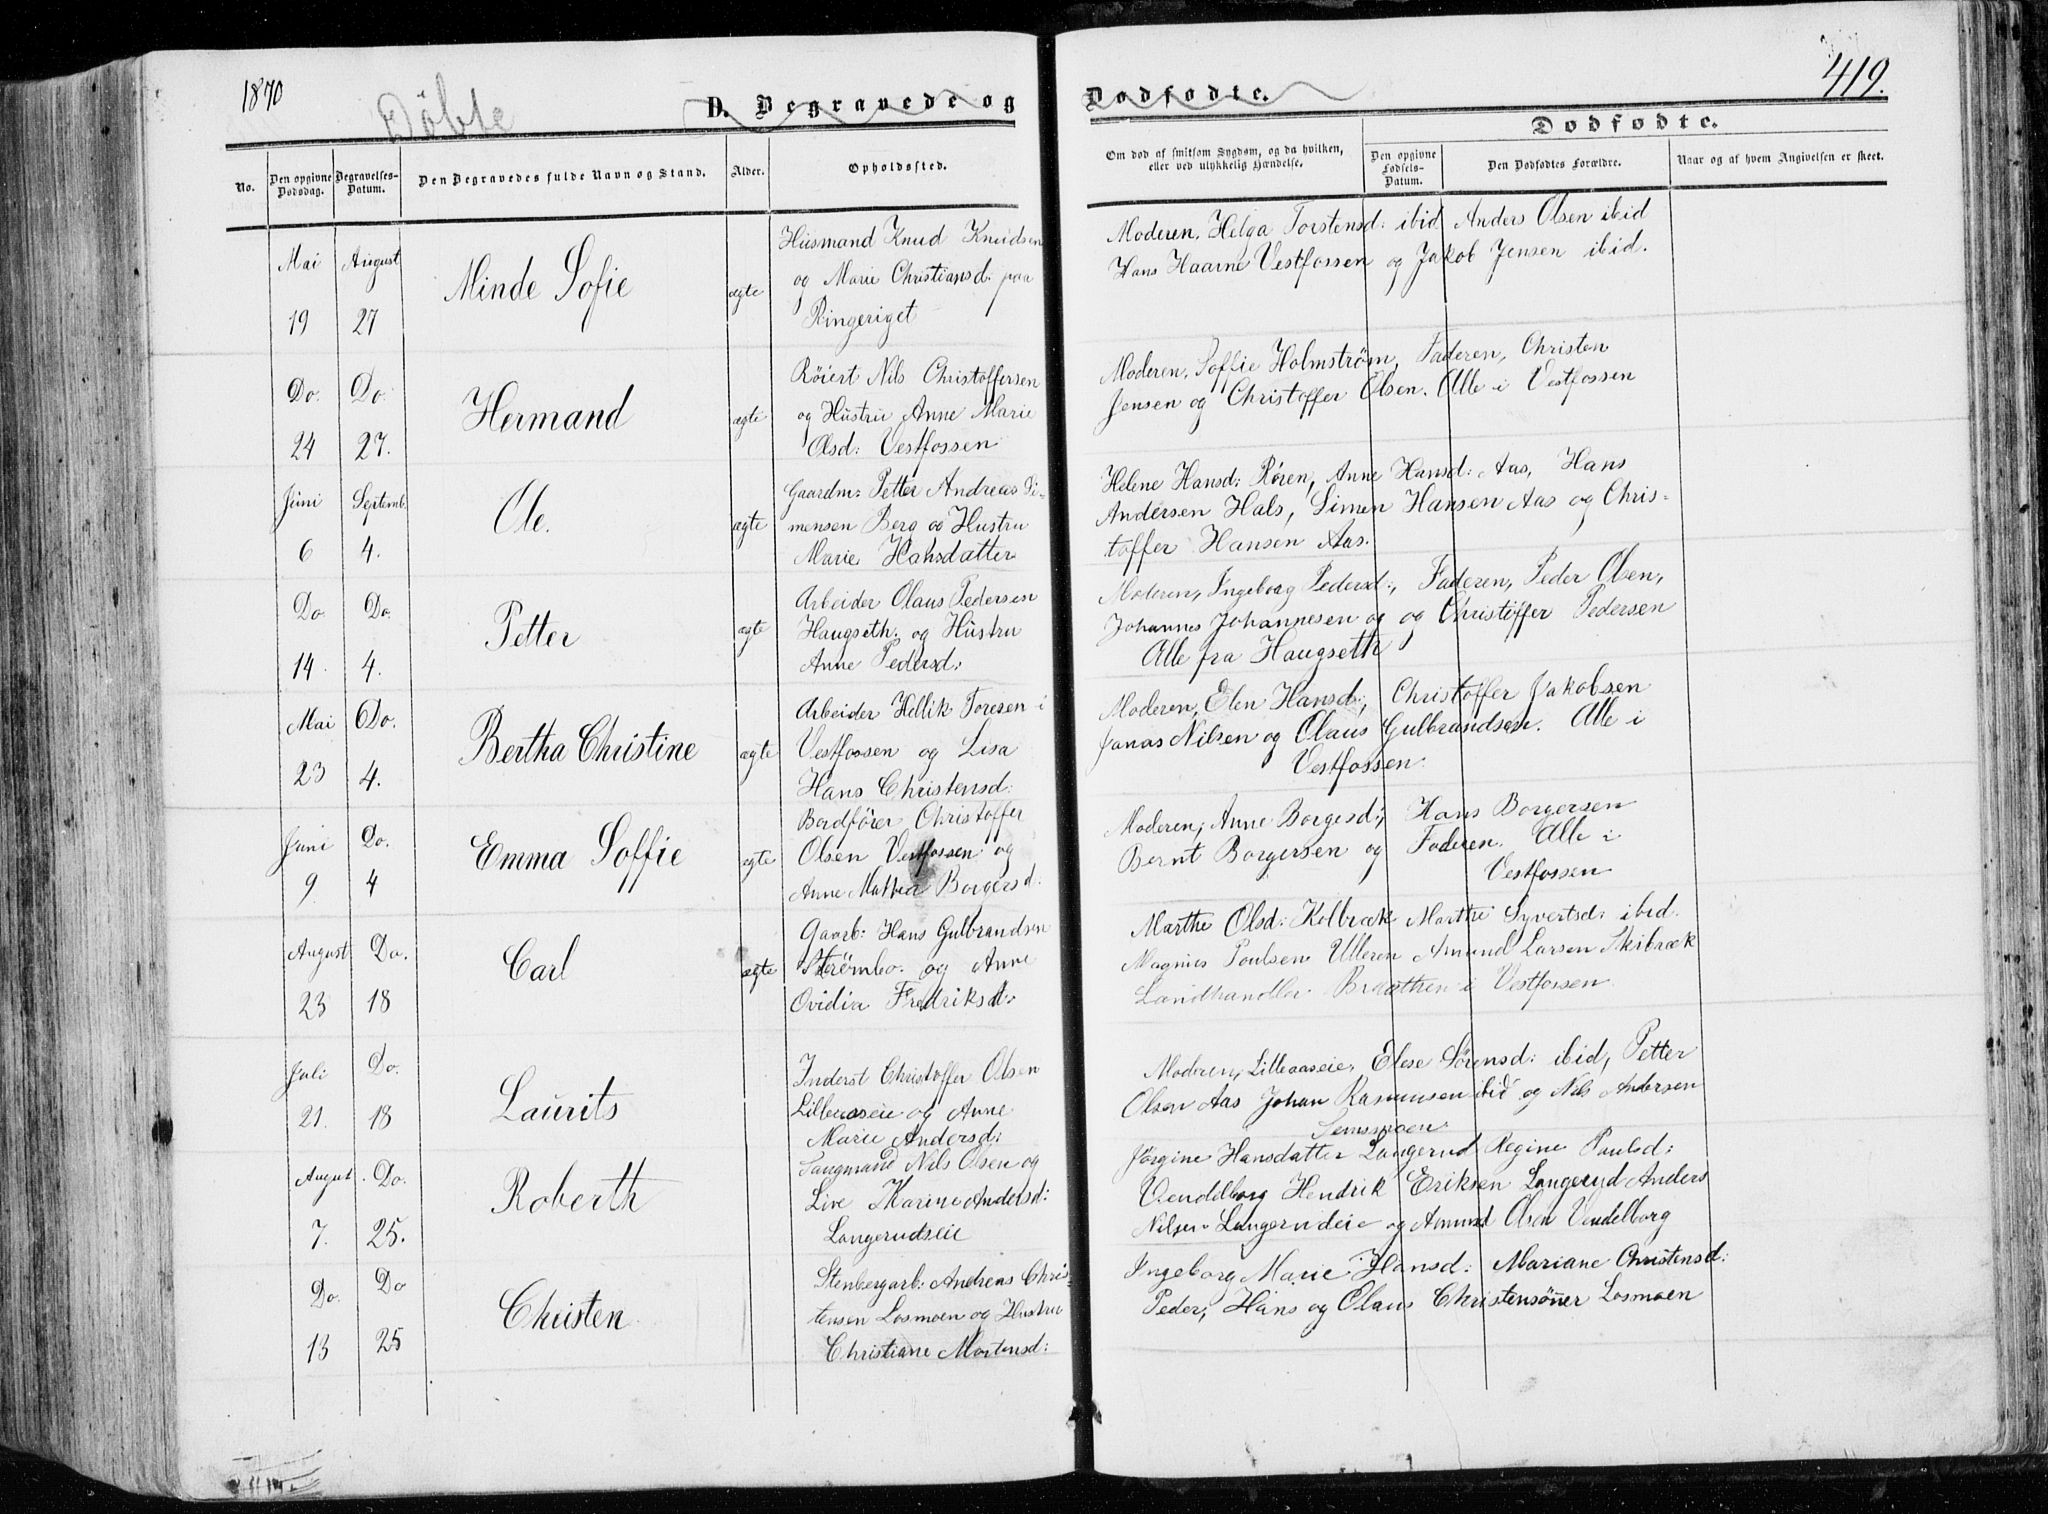 1870
Döbte
D. Begravede og
Dødfødte.
419.
No.
Den opgivne Dødsdag.
Begravelses-Datum.
Den Begravedes fulde Navn og Stand.
Alder.
Opholdssted.
Om død af smitsom Sygdom, og da hvilken, eller ved ulykkelig Hændelse.
Dødfødte.
Den opgivne Fødsels-Datum.
Den Dødfødtes Forældre.
Naar og af hvem Angivelsen er skeet.
Mai 19
August 27
Minde Sofie
ægte
Husmand Knud Knudsen
og Marie Christiansd: paa
Ringeriget
Moderen, Helga Torstensd: ibid Anders Olsen ibid
Hans Haarne Vestfossen og Jakob Jensen ibid.
Do. 24
Do. 27.
Hermand
ægte
Röiert Nils Christoffersen
og Hustru Anne Marie
Olsd: Vestfossen
Moderen, Soffie Holmström, Faderen, Christen
Jensen og Christoffer Olsen. Alle i Vestfossen
Juni 6
Septemb. 4.
Ole.
ægte
Gaardm: Petter Andreas Si-
mensen Berg og Hustru
Marie Hansdatter
Helene Hansd: Rören, Anne Hansd: Aas, Hans
Andersen Hals, Simen Hansen Aas og Chris-
toffer Hansen Aas.
Do. 14.
Do. 4.
Petter
ægte
Arbeider Olaus Pedersen
Haugseth. og Hustru
Anne Pedersd:
Moderen, Ingeborg Pedersd:, Faderen, Peder Olsen,
Johannes Johannesen og og Christoffer Pedersen
Alle fra Haugseth
Mai 23
Do. 4.
Bertha Christine
ægte
Arbeider Hellik Toresen i
Vestfossen og Lisa
Hans Christensd:
Moderen, Elen Hansd:, Christoffer Jakobsen
Jonas Nilsen og Olaus Gulbrandsen. Alle i
Vestfossen
Juni 9.
Do. 4
Emma Soffie
ægte
Bordfører Christoffer
Olsen Vestfossen og
Anne Mathea Borgersd.
Moderen, Anne Borgesd:, Hans Borgersen
Bernt Borgersen og Faderen. Alle i
Vestfossen
August 23
Do. 18
Carl
ægte
Gaarb: Hans Gulbrandsen
Strömbo. og Anne
Ovidia Fredriksd:
Marthe Olsd: Kolbræk Marthe Syvertsd: ibid.
Magnus Poulsen Ulleren Amund Larsen Skibræk
Landhandler Braathen i Vestfossen
Juli 21.
Do. 18
Laurits
Inderst Christoffer Olsen
Lilleaaseie og Anne
Marie Andersd:
Moderen, Lilleaaseie, Elese Sörensd: ibid, Petter
Olsen Aas Johan Rasmusen ibid og Nils Andersen
Semsmoen
August 7.
Do. 25.
Roberth
Saugmand Nils Olsen og
Live Karine Andersd:
Langerudseie
Jörgine Hansdatter Langerud Regine Paulsd:
Vendelborg Hendrik Eriksen Langerud Anders
Nilsen Langerudeie og Amund Olsen Vendelborg
Do. 13
Do 25
Christen
Stenbergarb: Andreas Chris-
tensen Losmoen og Hustru
Christiane Mortensd:
Ingeborg Marie Hansd: Mariane Christensd:
Peder, Hans og Olaus Christensönner Losmoen